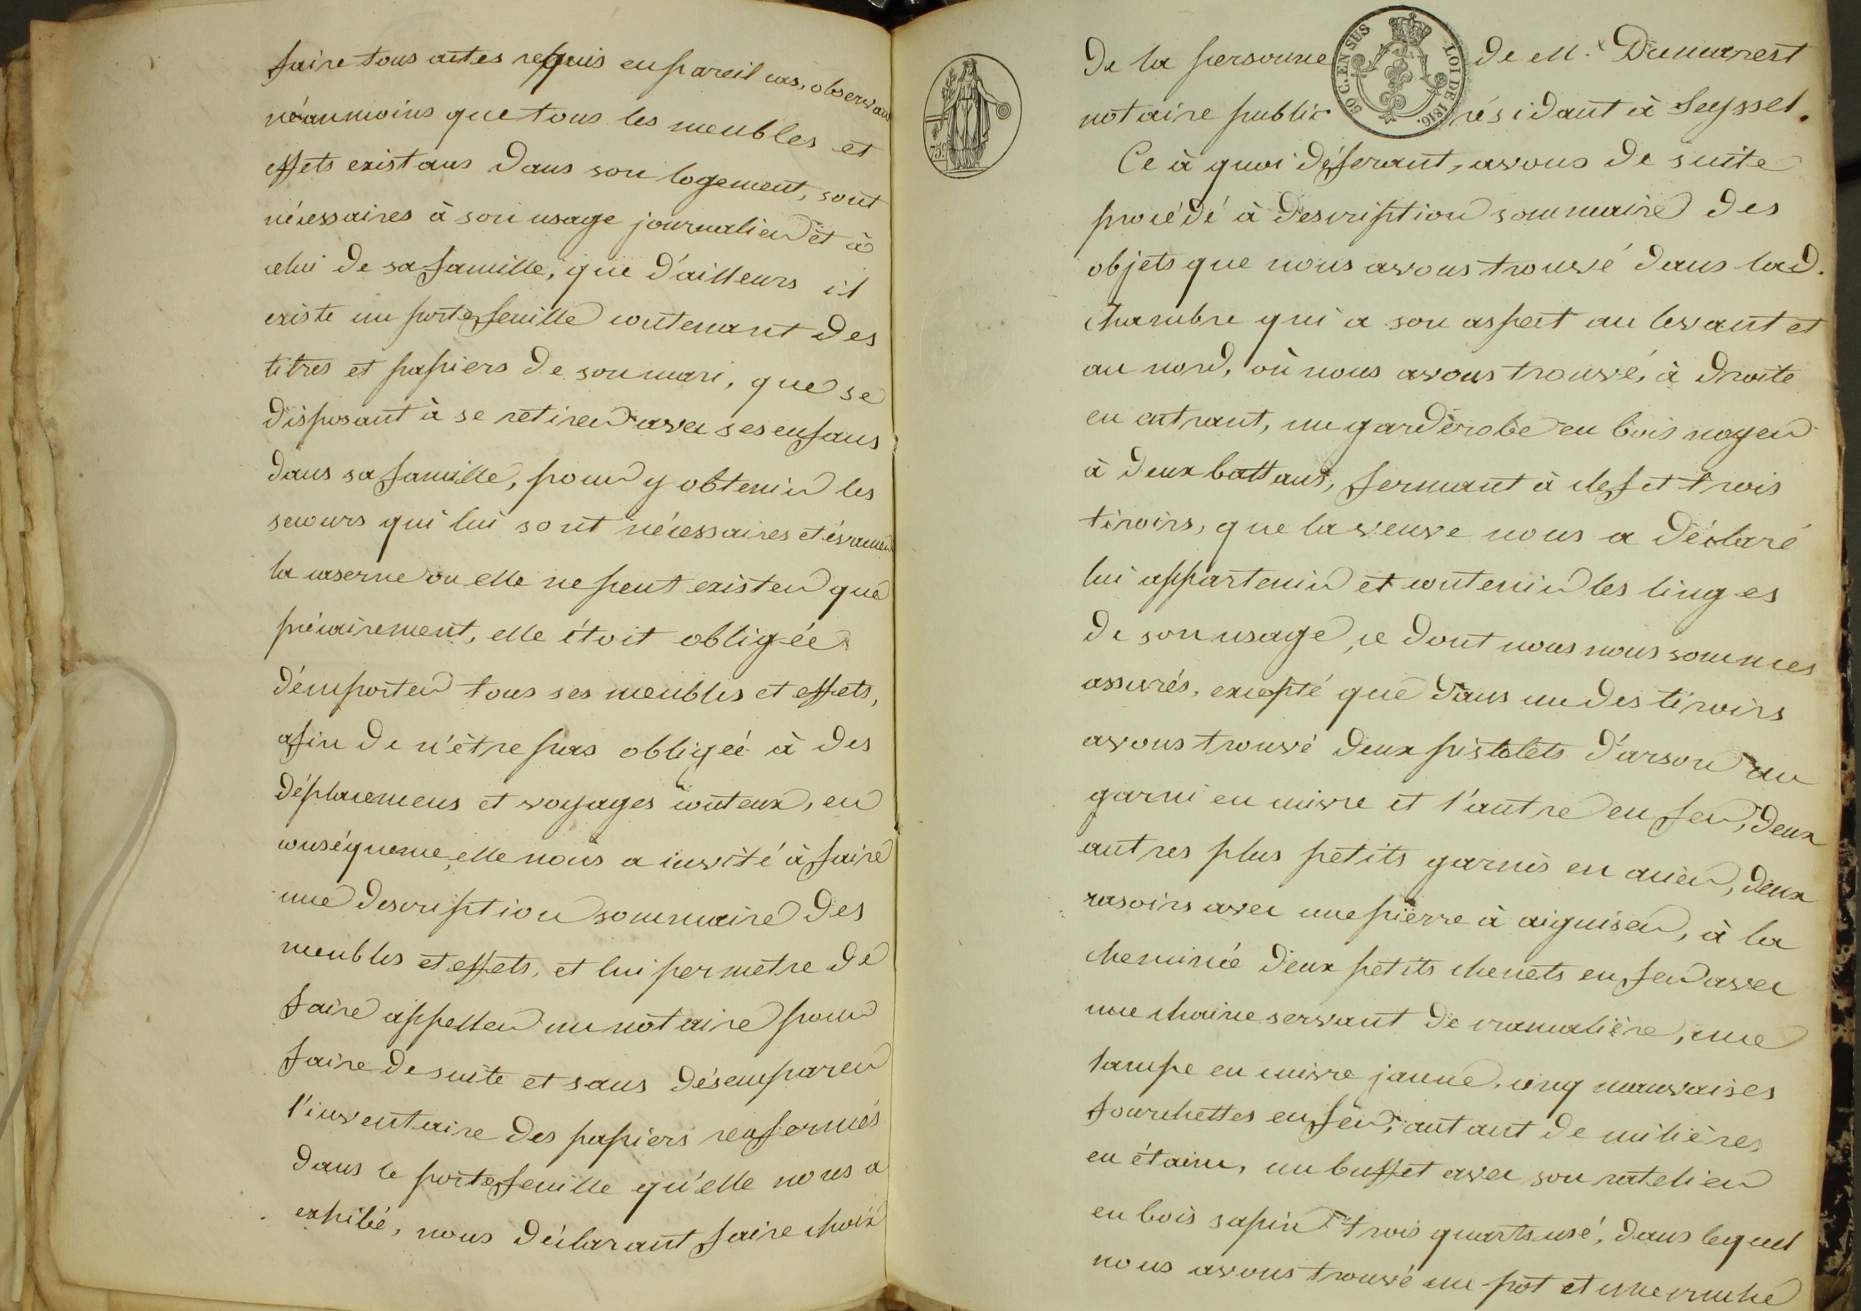 faire tous actes requis en pareil cas, observant
néanmoins que tous les meubles et
effets existans dans son logement, sont
nécessaires à son usage journalier et à
celui de sa famille, que d'ailleurs il
existe un portefeuille contenant des
titres et papiers de son mari, que se
disposant à se retirer avec ses enfans
dans sa famille, pour y obtenir les
secours qui lui sont nécessaires et évacuer
la caserne ou elle ne peut exister que
précairement, elle étoit obligée
d'emporter tous ses meubles et effets,
afin de n'être pas obligée à des
déplacemens et voyages couteux, en
conséquence, elle nous a invité à faire
une description sommaire des
meubles et effets, et lui permetre de
faire appeller un notaire pour
faire de suite et sans désemparer
l'inventaire des papiers renfermés
dans le portefeuille qu'elle nous a
exhibé, nous déclarant faire choix
de la personne de M. Dumarest
notaire public résidant à Seyssel.
50 C. EN SUS
LOI DE 1816.
Ce à quoi déferant, avons de suite
procédé à description sommaire des
objets que nous avons trouvé dans lad.
chambre qui a son aspect au levant et
au nord, où nous avons trouvé, à droite
en entrant, un garderobe en bois noyer
à deux battans, fermant à clef et trois
tiroirs, que la veuve nous a déclaré
lui appartenir et contenir les linges
de son usage, ce dont nous nous sommes
assurés, excepté que dans un des tiroirs
avons trouvé deux pistolets d'arson un
garni en cuivre et l'autre en fer, deux
autres plus petits garnis en acier, deux
rasoirs avec une pierre à aiguiser, à la
cheminée deux petits chenets en fer avec
une chaine servant de cramalière, une
lampe en cuivre jaune, cinq mauvaises
fourchettes en fer, autant de cuilières
en étaim, un buffet avec son ratelier
en bois sapin trois quarts usé, dans lequel
nous avons trouvé un pot et une cruche